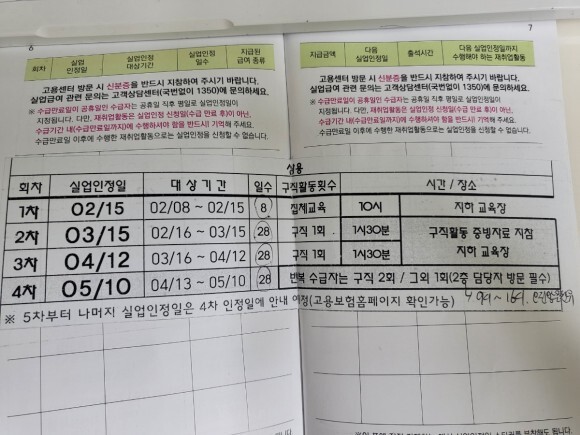 6
회차 실업인정일 실업인정 대상기간 실업인정 일수 지급된 급여 종류
고용센터 방문 시 신분증을 반드시 지참하여 주시기 바랍니다.
실업급여 관련 문의는 고객상담센터(국번없이 1350)에 문의하세요.
※ 수급만료일이 공휴일인 수급자는 공휴일 직후 평일로 실업인정일이
지정됩니다. 다만, 재취업활동은 실업인정 신청일(수급 만료 후)이 아닌,
수급기간 내(수급만료일까지)에 수행하셔야 함을 반드시! 기억해 주세요.
수급만료일 이후에 수행한 재취업활동으로는 실업인정을 신청할 수 없습니다.
7
지급금액 다음 실업인정일 출석시간 다음 실업인정일까지 수행해야 하는 재취업활동
고용센터 방문 시 신분증을 반드시 지참하여 주시기 바랍니다.
실업급여 관련 문의는 고객상담센터(국번없이 1350)에 문의하세요.
※ 수급만료일이 공휴일인 수급자는 공휴일 직후 평일로 실업인정일이
지정됩니다. 다만, 재취업활동은 실업인정 신청일(수급 만료 후)이 아닌,
수급기간 내(수급만료일까지)에 수행하셔야 함을 반드시! 기억해 주세요.
수급만료일 이후에 수행한 재취업활동으로는 실업인정을 신청할 수 없습니다.
상용
회차 실업인정일 대상기간 일수 구직활동횟수 시간 / 장소
1차 02/15 02/08 ~ 02/15 8 집체교육 10시 지하 교육장
2차 03/15 02/16 ~ 03/15 28 구직 1회 1시30분 구직활동 증빙자료 지참
3차 04/12 03/16 ~ 04/12 28 구직 1회 1시30분 지하 교육장
4차 05/10 04/13 ~ 05/10 28 반복 수급자는 구직 2회 / 그외 1회(2층 담당자 방문 필수)
※ 5차부터 나머지 실업인정일은 4차 인정일에 안내 예정(고용보험홈페이지 확인가능)